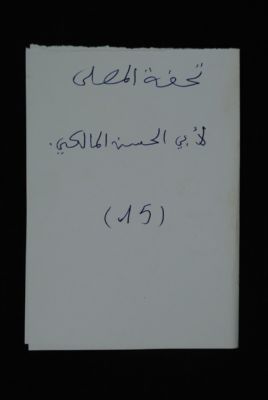 تحفة المصلي
لأبي الحسن المالكي.
(15)